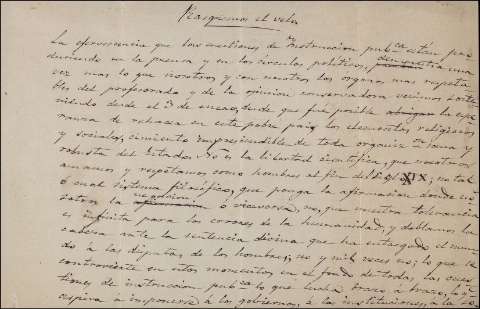 Rasguemos el velo
La efervescencia que las cuestiones de Instruccion pubca están pro
duciendo en la prensa y en los circulos politicos, demuestra una
vez mas lo que nosotros y con nosotros los organos mas respeta
bles del profesorado y de la opinion conservadora venimos soste
niendo desde el 3 de enero, desde que fué posible abrigar la espe
ranza de rehacer en este pobre pais los elementos religiosos
y sociales, cimiento imprescindible de toda organizon sana y
robusta del Estado. No es la libertad cientifica, que nosotros
amamos y respetamos como hombres al fin del siglo XIX; no tal
ó cual sistema filosofico, que ponga la afirmacion donde no
sotros la negacion, ó viceversa, no, que nuestra tolerancia
es infinita para los errores de la humanidad, y doblamos la
cabeza ante la sentencia divina que ha entregado el mun
do á las disputas de los hombres; no y mil veces no; lo que se
controvierte en estos momentos en el fondo de todas las cues
tiones de instruccion pubca lo que lucha brazo á brazo, lo que
aspira á imponerse á los gobiernos, á las instituciones, á la